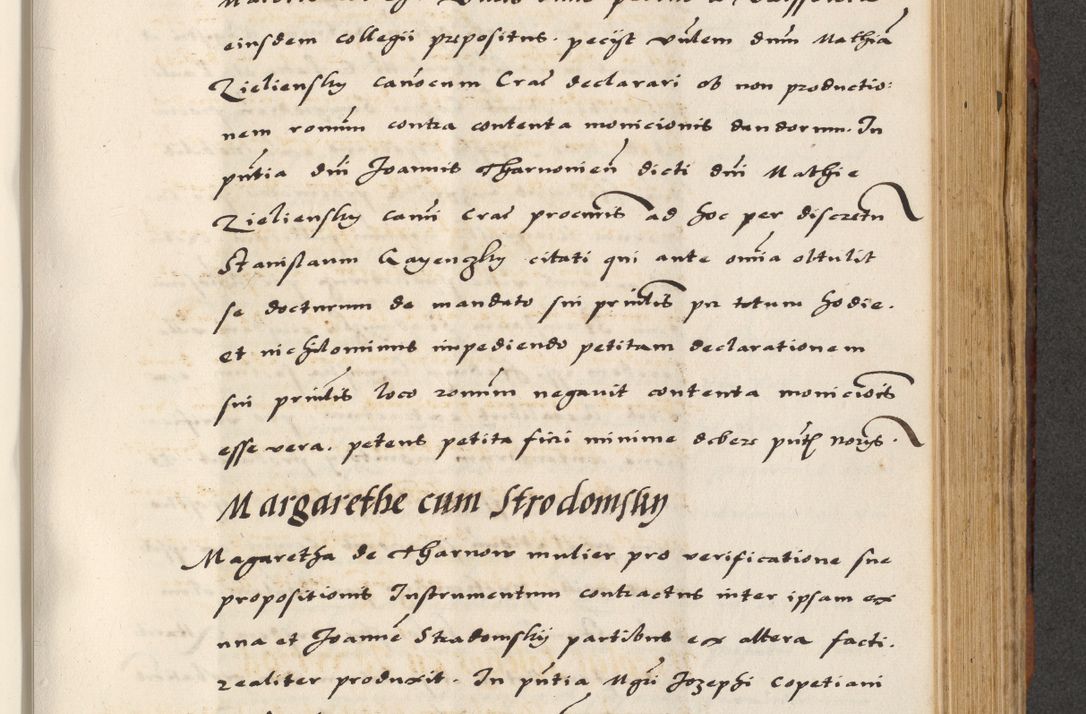 eiusdem collegii prepositus. pecijt vnlem dnm Mathia
Zieliensky canocum Cracˉ declarari ob non productio:
nem romum contra contenta monicionis dandorum. In
pntia dni Joannis Tharnonien dicti dni Mathie
Zieliensky cani Cracˉ procuris ad hoc per discretu
Stanislaum Gayenczky citati qui ante omia obtulit
se docturum de mandato sui prinlis per totum hodie.
et nichilominus impediendo petitam declarationem
sui prinlis loco romum negauit contenta moniciois
esse vera. petens petita fieri minime debere pnt
Margarethe cum Strodomsky
Magaretha de Tharnow mulier pro verificatione sue
propositionis Instrumentum contractus inter ipsam ex
vna et Joanne Stradomskij partibus ex altera facti.
realiter produxit. In pntia Mgri Jozephi Copetiani